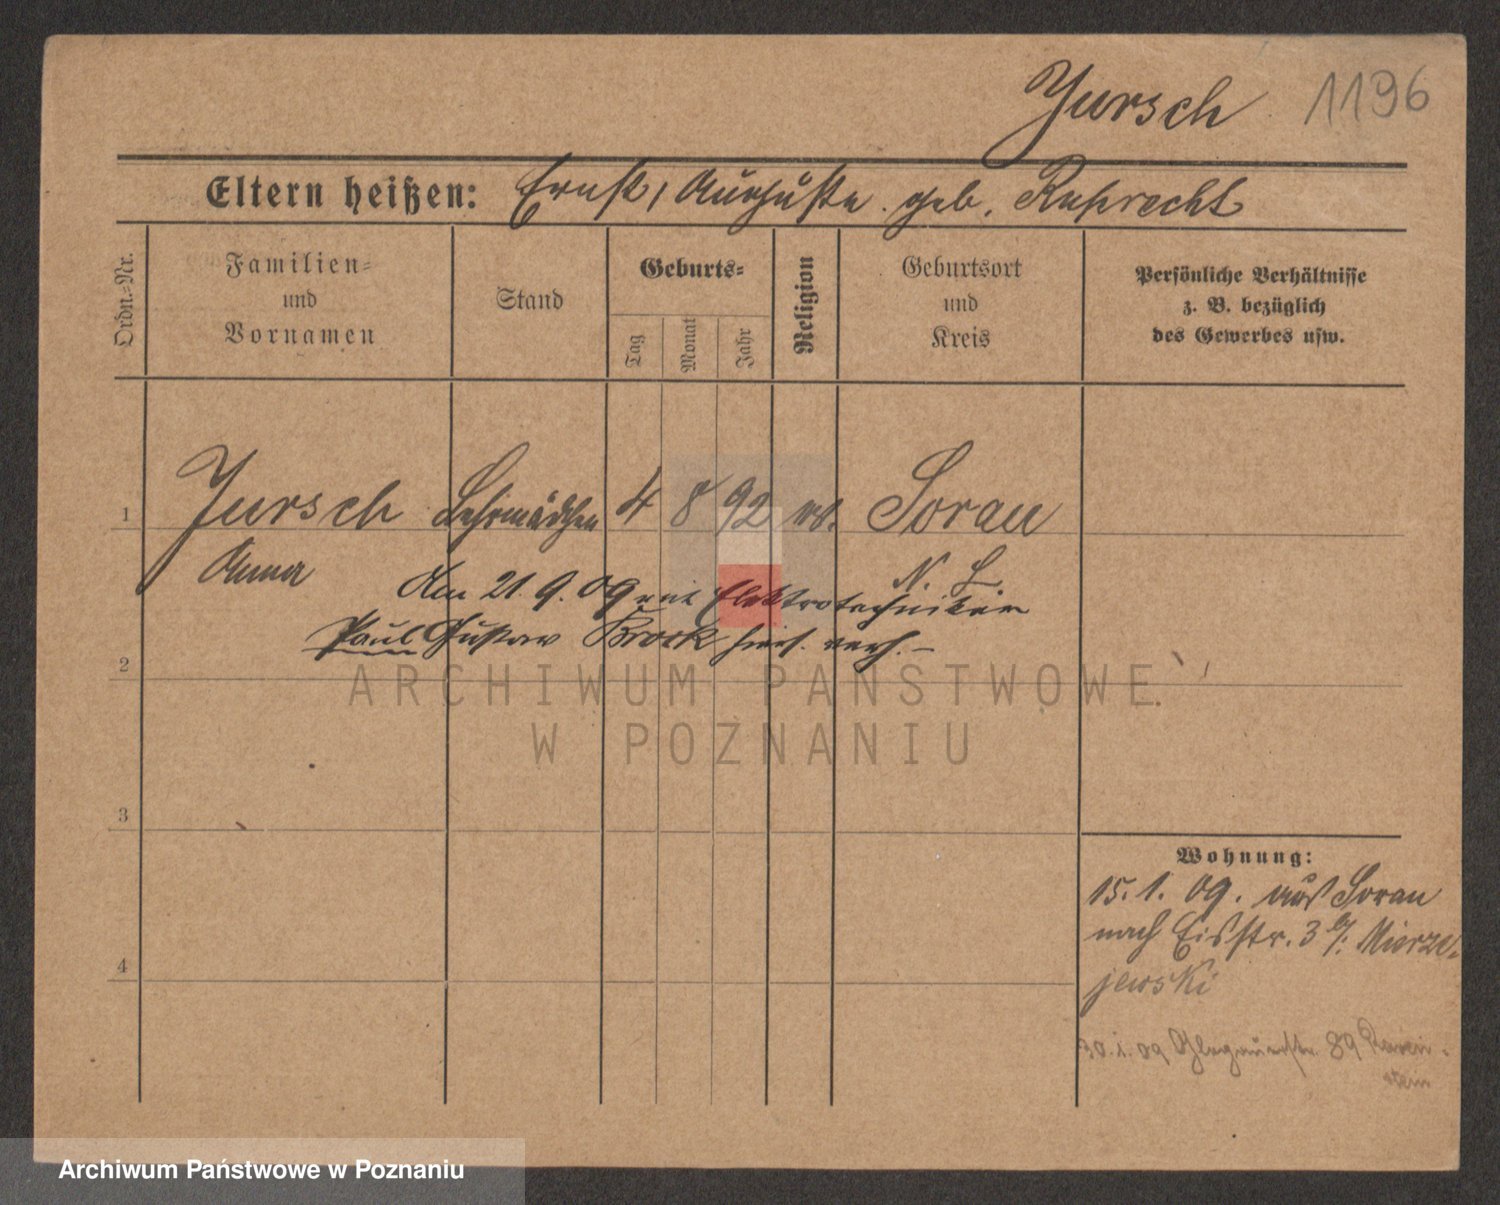 Jursch 1196
Eltern heißen: Ernst, Auguste geb. Ruprecht
Ordn.=Nr.
Familien=
und
Vornamen
Stand
Geburts=
Tag
Monat
Jahr
Religion
Geburtsort
und
Kreis
Persönliche Verhältnisse
z. B. bezüglich
des Gewerbes usw.
1 Jursch Lehrmädchen 4 8 92 ev. Sorau
Anna N. L.
Am 21. 9. 09 mit Elektrotechniker
Paul Gustav Brock hier verh. –
2
ARCHIWUM PAŃSTWOWE
W POZNANIU
3
Wohnung:
15. 1. 09. aus Sorau
nach Eisstr. 3 b/: Mierze-
jewski
4
30. 1. 09 Glogauerstr. 89 Raven-
stein
Archiwum Państwowe w Poznaniu